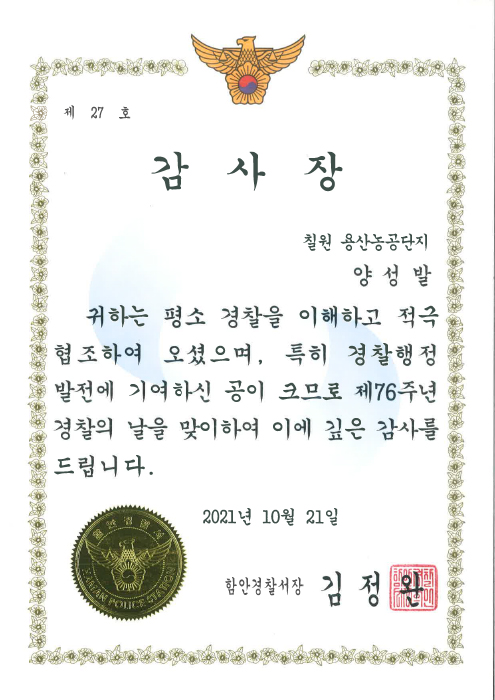 제 27 호
감 사 장
칠원 용산농공단지
양 성 발
귀하는 평소 경찰을 이해하고 적극
협조하여 오셨으며, 특히 경찰행정
발전에 기여하신 공이 크므로 제76주년
경찰의 날을 맞이하여 이에 깊은 감사를
드립니다.
2021년 10월 21일
함안경찰서
HAMAN POLICE STATION
함안경찰서장 김 정 완